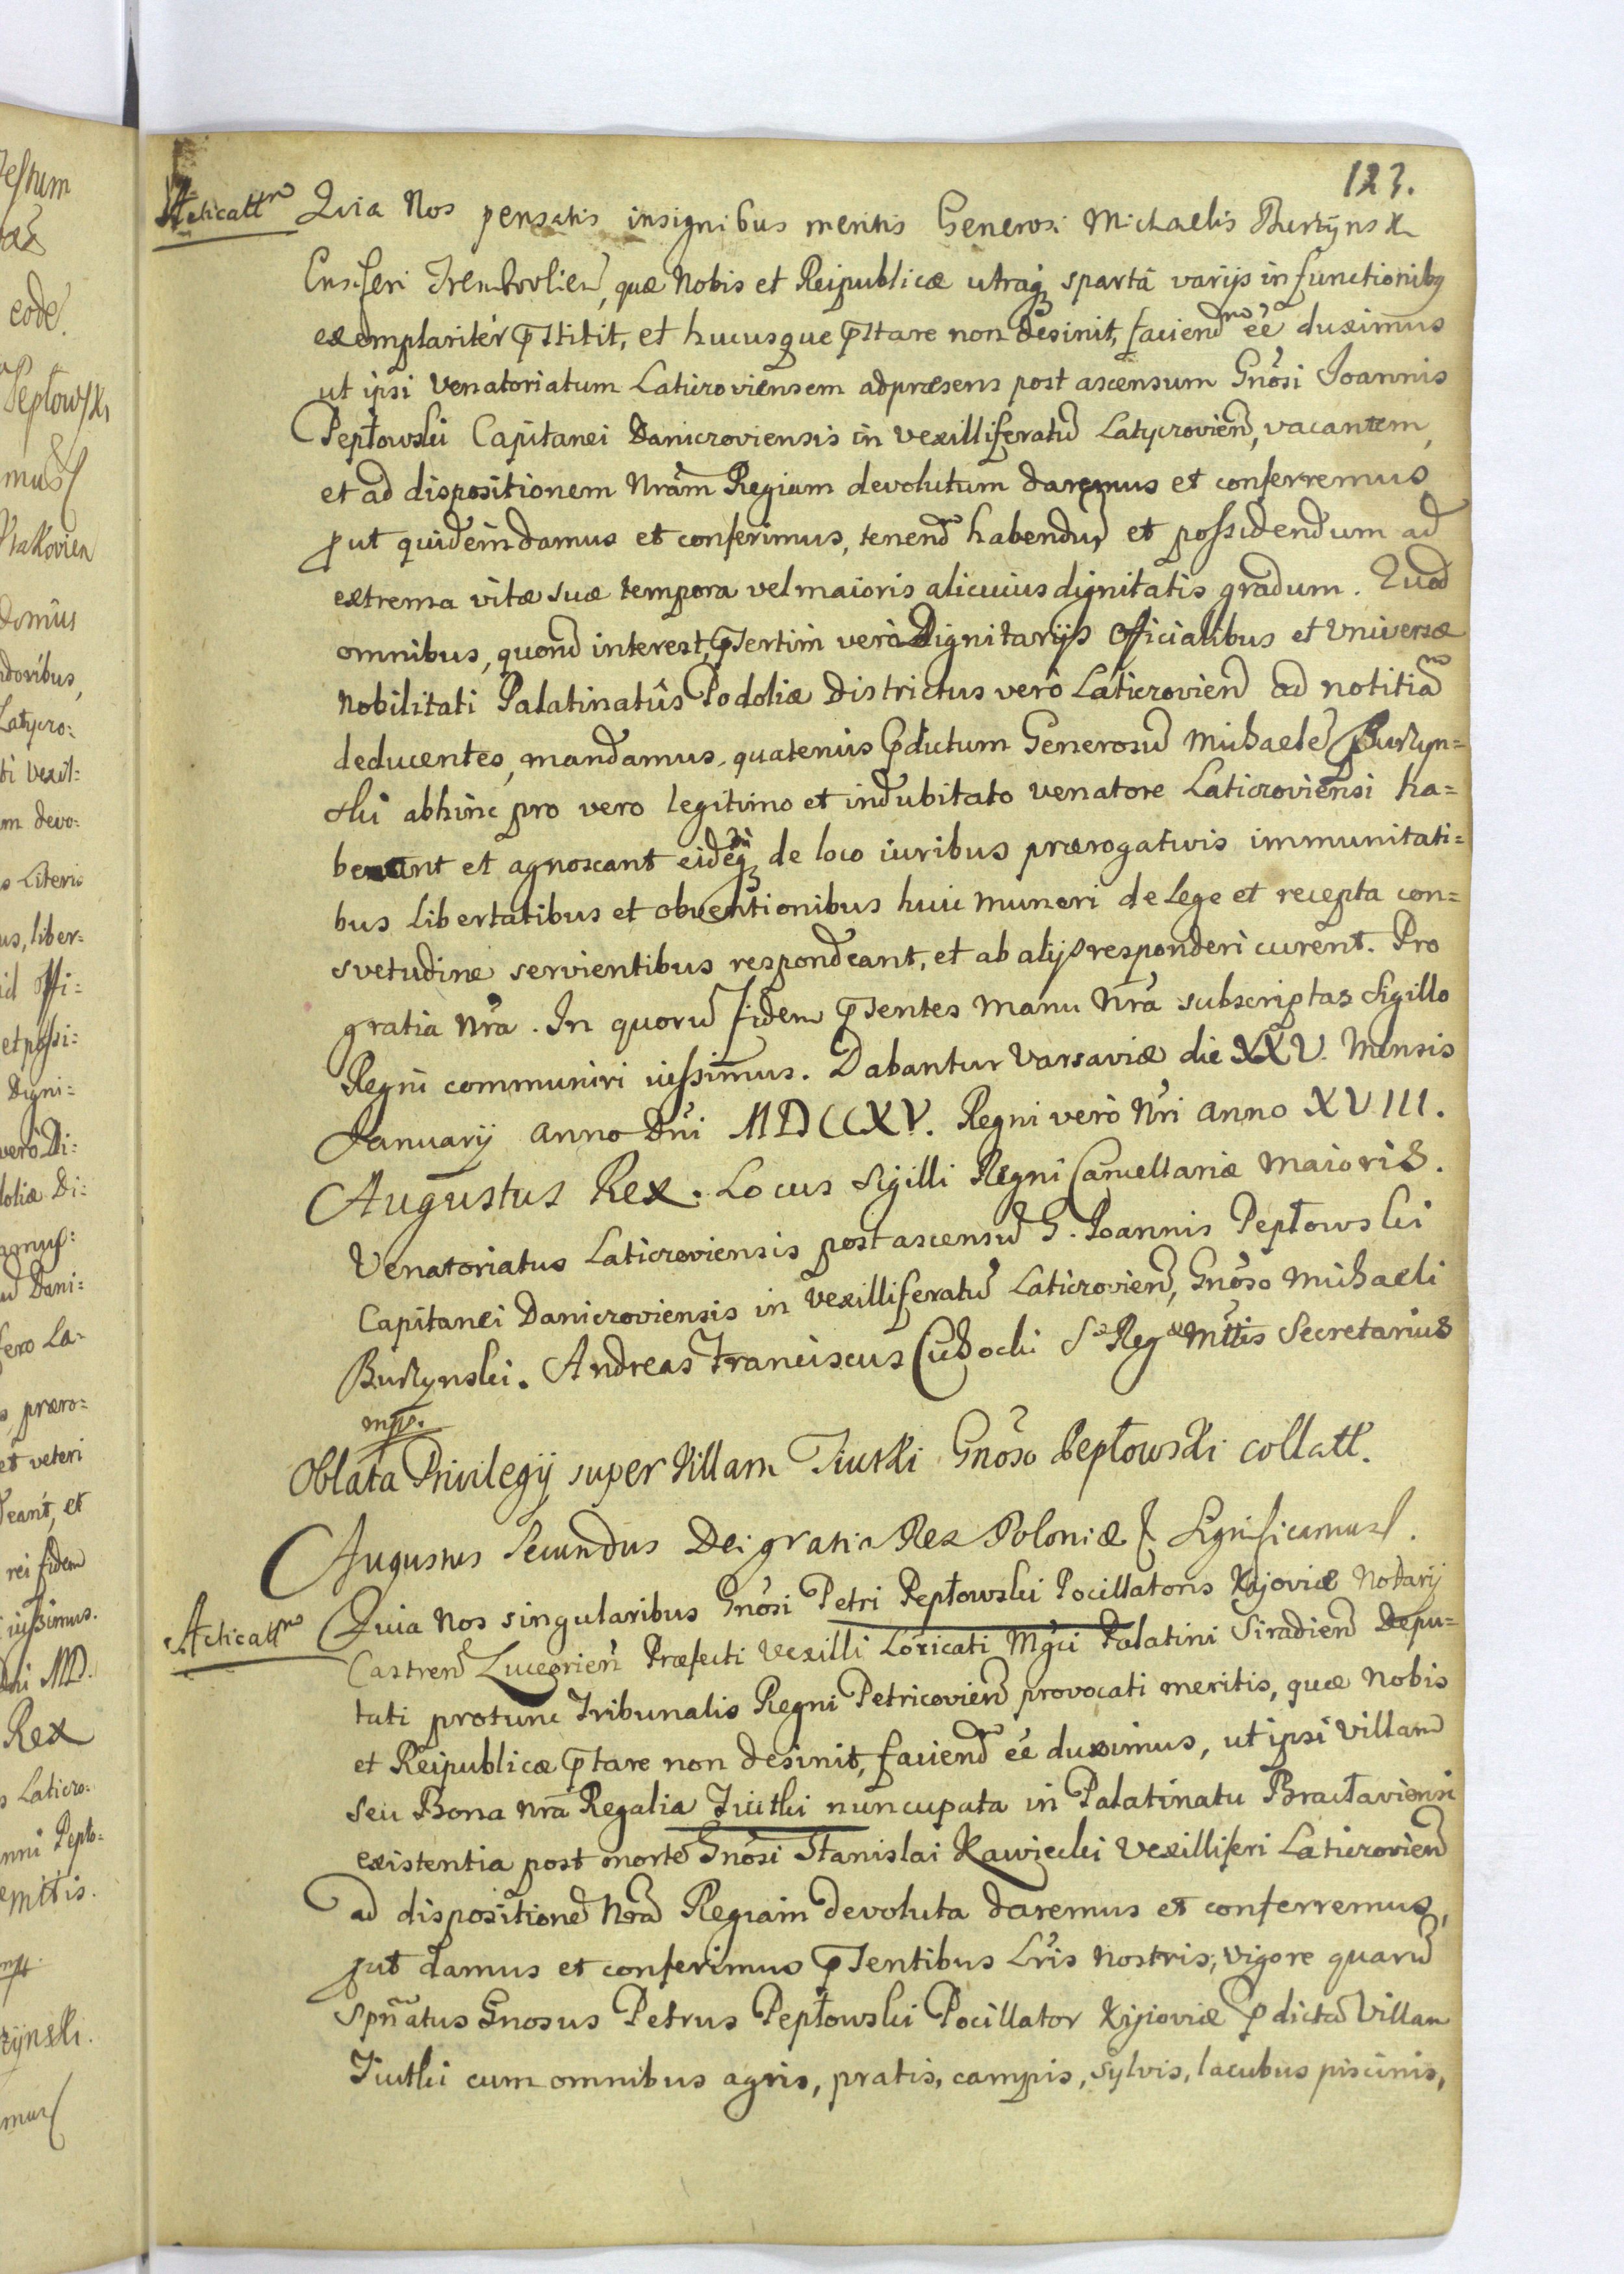 123.
Acticatt
Quia Nos pensatis insignibus meritis Generosi Michaelis Burzynski
Ensiferi Trembovlien, quæ Nobis et Reipublicæ utraq spartâ varijs in functionibq
exemplaritèr pstitit, et hucusque pstare non desinit, faciend eê duximus
ut ipsi Venatoriatum Laticzoviensem adpræsens post ascensum Gnôsi Joannis
Peptowski Capitanei Daniczoviensis in Vexilliferatũ Latyczovien, vacantem,
et ad dispositionem Nrãm Regiam devolutum daremus et conferremus
put quidem damus et conferimus, tenend habendũ et possidendum ad
extrema vitæ suæ tempora vel maioris alicuius dignitatis gradum. Quod
omnibus, quorũ interest, psertim verò Dignitarijs Officialibus et Universæ
Nobilitati Palatinatûs Podoliæ Districtus verò Laticzovien ad notitiã
deducentes, mandamus, quatenùs pdictum Generosũ Michaelẽ Burzyn=
ski abhinc pro vero legitimo et indubitato Venatore Laticzoviensi ha=
beant et agnoscant eidẽq de loco iuribus prærogativis immunitati=
bus libertatibus et obventionibus huic muneri de lege et recepta con=
svetudine servientibus respondeant, et ab alijs responderi curent. Pro
gratia Nrã. In quorũ fidem psentes manu Nrã subscriptas Sigillo
Regni communiri iussimus. Dabantur Varsaviæ die XXV. Mensis
Januarij anno Dni MDCCXV. Regni verò Nri anno XVIII.
Augustus Rex. Locus Sigilli Regni Cancellariæ Maioris.
Venatoriatus Laticzoviensis post ascensũ G. Joannis Peptowski
Capitanei Daniczoviensis in Vexilliferatũ Laticzovien, Gnôso Michaeli
Burzynski. Andreas Franciscus Cichocki Sæ Regæ Mttis Secretarius
mp.
Oblata Privilegij super Villam Tiutki Gnôso Peptowski collatt.
Augustus Secundus Dei gratia Rex Poloniæ Significamus.
Acticatt
Quia Nos singularibus Gnôsi Petri Peptowski Pocillatoris Kijoviæ Notarij
Castren Luceorien Præfecti Vexilli Loricati Mgci Palatini Siradien Depu=
tati protunc Tribunalis Regni Petricovien provocati meritis, quæ Nobis
et Reipublicæ pstare non desinit, faciend eê duximus, ut ipsi Villam
seu Bona nrã Regalia Tiutki nuncupata in Palatinatu Bractaviensi
existentia post mortẽ Gnôsi Stanislai Kawiecki Vexilliferi Laticzovien
ad dispositionẽ Nrã Regiam devoluta daremus et conferremus,
put damus et conferimus psentibus Lris nostris, vigore quarũ
Spñatus Gnosus Petrus Peptowski Pocillator Kijioviæ pdictã Villam
Tiutki cum omnibus agris, pratis, campis, sylvis, lacubus piscinis,